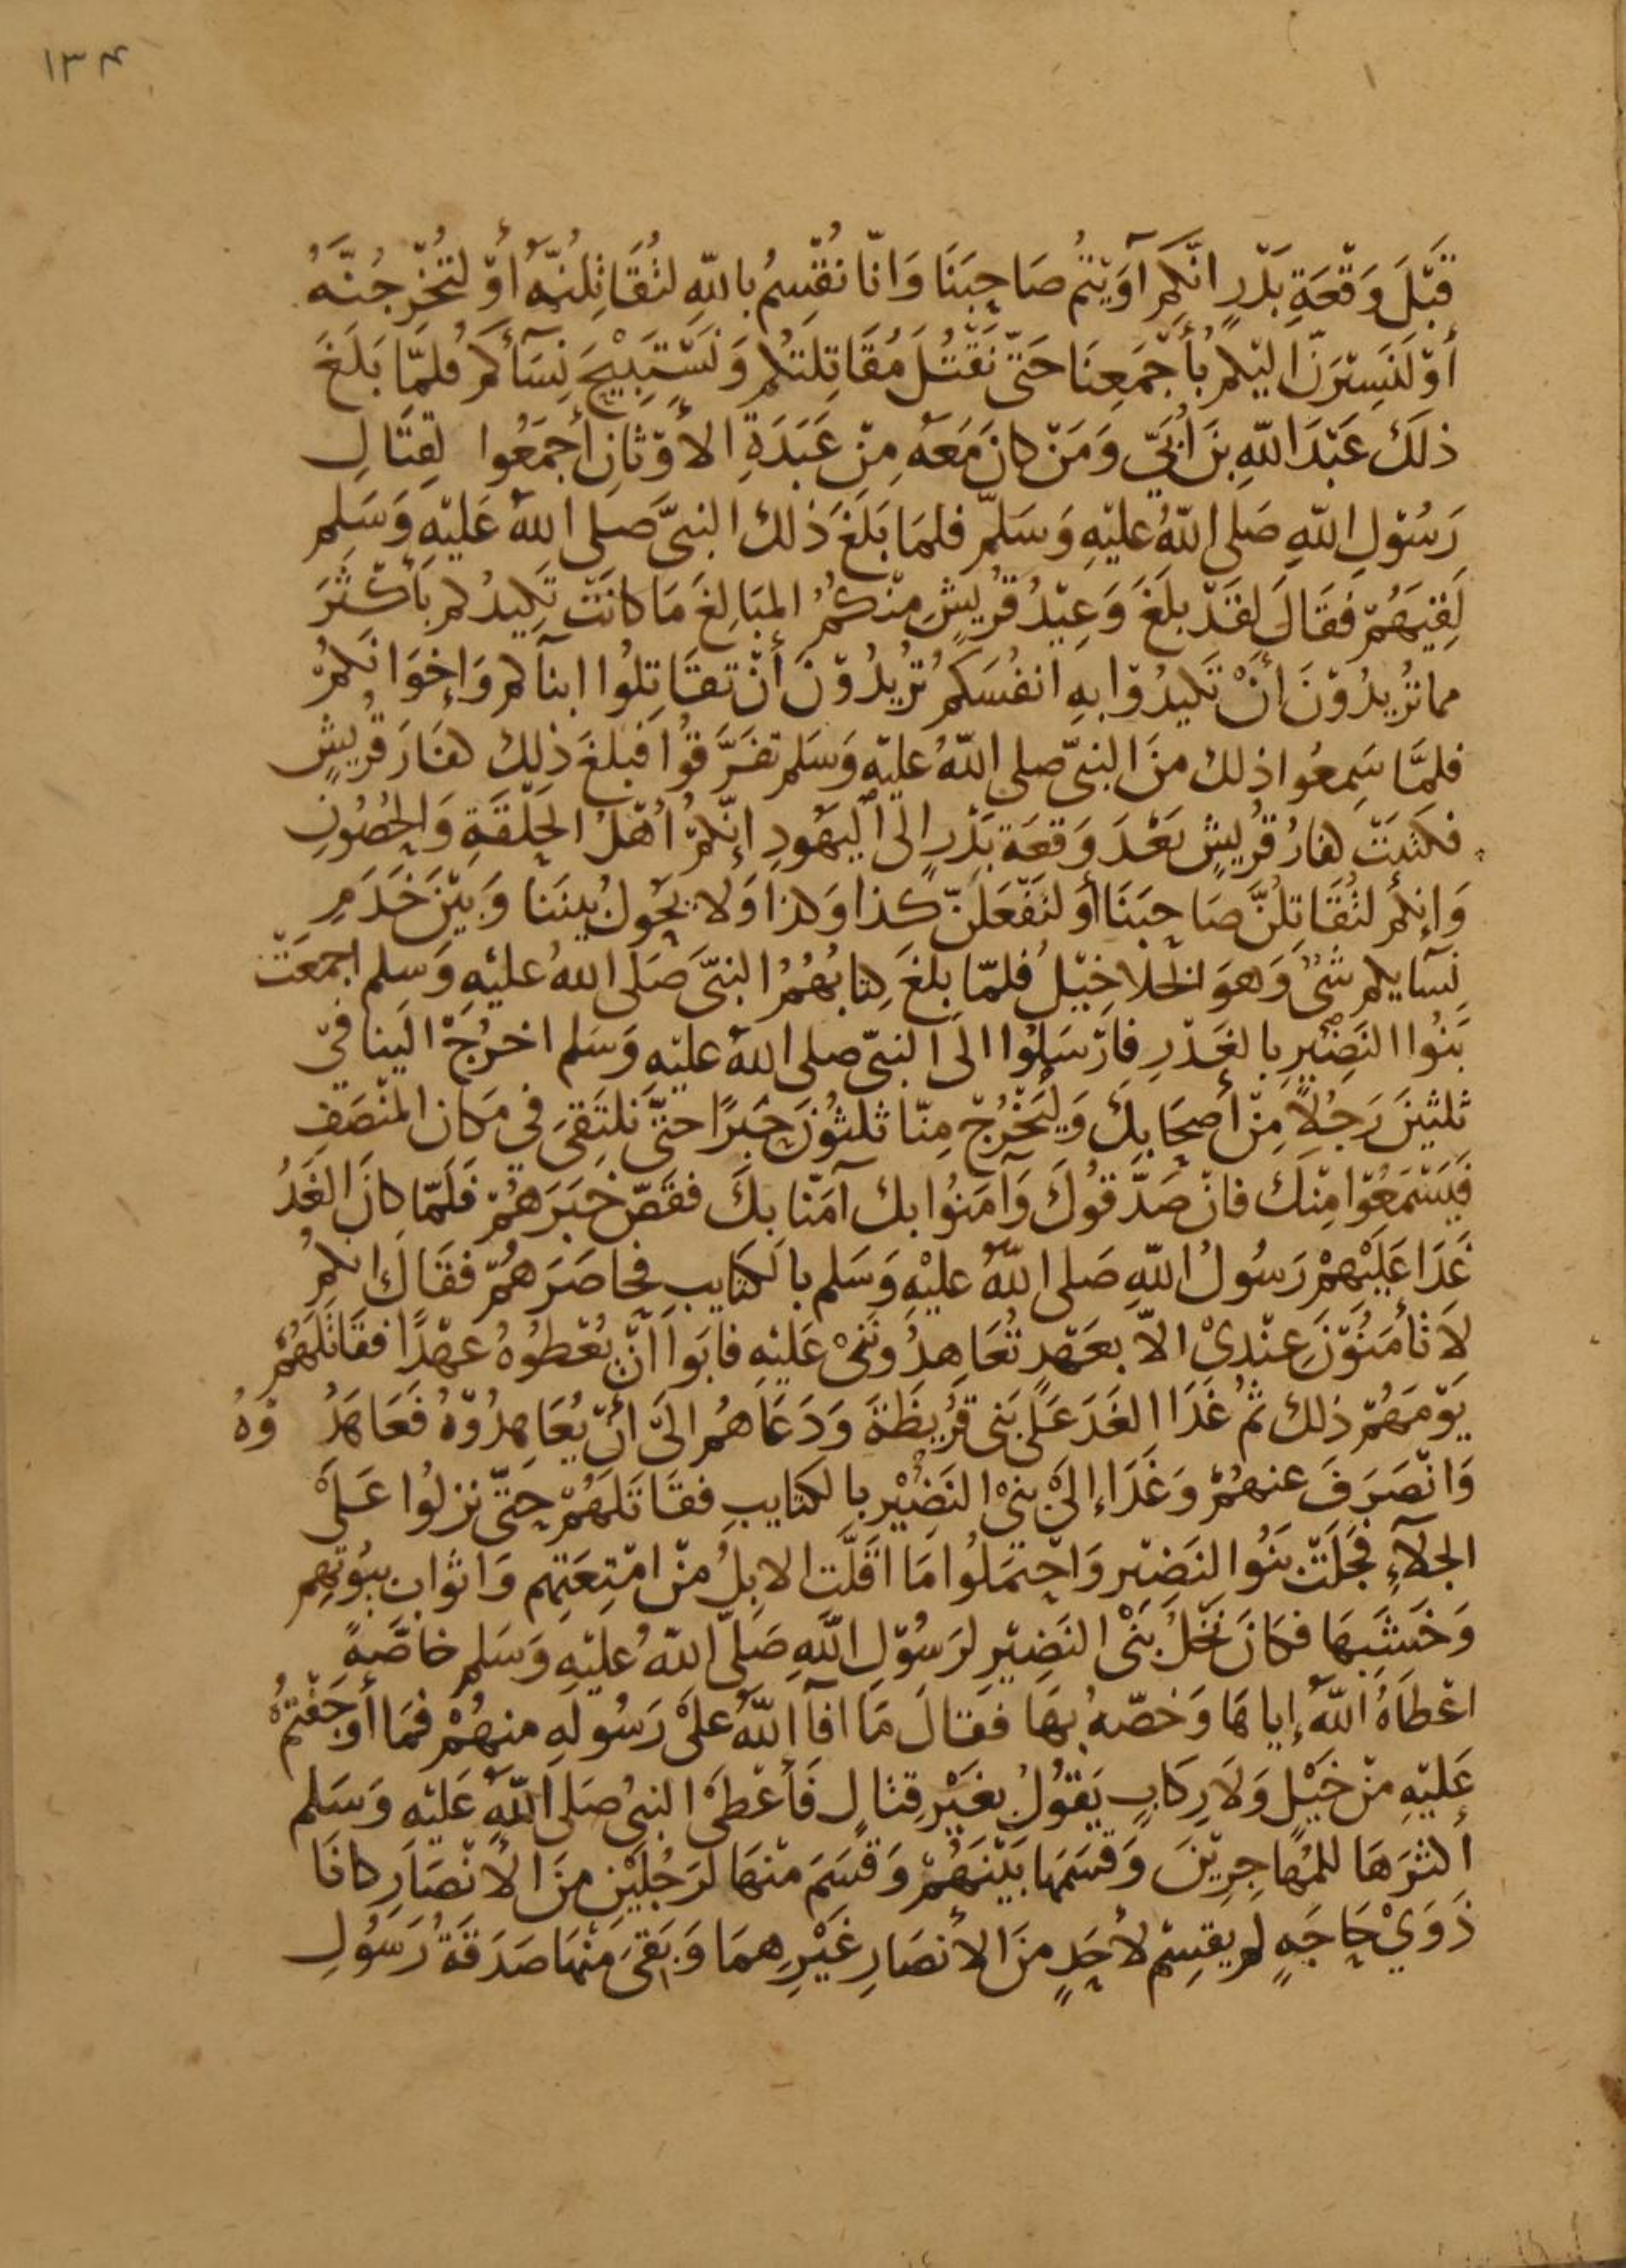 ١٣٤
قَبْلَ وَقْعَةِ بَدْرٍ انَّكُمْ آوَيْتُمْ صَاحِبَنَا وَانّا نُقْسِمُ باللّهِ لتُقَاتِلُنَّهُ أَوْ لتُخْرِجُنَّهُ
أَوْ لَنَسِيْرَنَّ اليْكُمْ بأَجْمَعِنَا حَتّى نَقْتُلَ مُقَاتِلتكُمْ وَنَسْتَبِيْحَ نِسَآءكُمْ فلمّا بَلَغَ
ذلَكَ عَبْدَ اللّهِ بنَ أُبَيّ وَمَنْ كانَ مَعَهُ مِنْ عَبَدَةِ الأَوْثَانِ أَجمَعُوا لقِتَالِ
رَسُوْلِ اللّهِ صَلى اللّهُ عليْهِ وَسَلمّ فلمَا بَلَغَ ذلك النبىَّ صَلى اللّهُ عَليْهِ وَسَلم
لَقِيَهُمْ فقَالَ لقَدْ بلَغَ وَعِيْدُ قُرَيشٍ منْكُمُ المبَالِغَ مَا كانَتْ تَكِيدُكم بأَكْثَرَ
مما تُرِيدُوْنَ أنْ تَكيدُوْا بهِ انفُسَكمْ تُرِيْدُوْنَ أَنْ تقَاتِلُوا ابنآكم وَإخوَانَكمْ
فلمَّا سَمِعُوا ذلك منَ النبىّ صلى اللّهُ عليْهِ وَسَلم تفَرَّقوُا فبلغَ ذلِكَ كفارَ قُرَيشٍ
فكتَبَتْ كفارُ قُرَيشٍ بَعْدَ وَقعَةِ بَدْرٍ إلى اليَهُودِ إنّكمْ أَهْلُ الحلْقَةِ وَالحُصُونِ
وَإنكُمْ لتُقَاتِلُنَّ صَاحِبَنَا أَوْ لنَفْعَلَنَّ كذا وَكذا وَلا يحُولُ بيننَا وَبيْنَ خَدَمِ
نِسَآيكم شئٌ وَهوَ الخلاخِيْلُ فلمّا بلغَ كِتابُهُمُ النبىَّ صَلى اللهُ عليْهِ وَسلم اجمعَتْ
بَنُوا النَضِيْرِ بالغَدْرِ فارْسَلُوا الى النبىّ صلى اللهُ عليْهِ وَسَلم اخرُجْ الَينا فىْ
ثلثيْنَ رَجُلاً مِنْ أصحَابِكَ وَليَخْرُجْ مِنّا ثلثوُنَ حَبرًا حتّى نَلتَقىَ فى مَكان المنْصَفِ
فيَسْمَعُوْا مِنْكَ فانْ صَدَّقُوكَ وَآمَنُوا بك آمَنّا بكَ فقَصّ خبَرَهُمْ فَلَمّا كانَ الغَدُ
غَدَا عَلَيْهِمْ رَسُولُ اللّهِ صَلى اللّهُ عليْهِ وَسَلم بالكتَايبِ فحَاصَرَهُمْ فقَالَ انكمُ
لاَ تأمَنُوْنَ عِنْدِىْ الاّ بعَهْدٍ تُعَاهِدُونَنىْ عَليْهِ فابَوا انْ يُعْطوُهُ عهْدًا فقَاتلَهُمْ
يَوْمَهُمْ ذلك ثمّ غَدَا الغَدَ عَلى بَنى قُرَيظَةَ وَدَعَاهُم الَى انْ يُعَاهِدُوْهُ فَعَاهَدُ وْهُ
وَانْصَرَفَ عنهُمْ وَغَدَا إلىَ بنىْ النَضِيْرِ بالكتايبِ فقَاتَلَهُمْ حتّى نزلُوا عَلىْ
الجلآءِ فجَلَتْ بَنُوا النَضيْر وَاحْتمَلُوا مَا اقَلَّت الابلُ منْ امْتِعَتِهم وَابْوَاب بيُوْتِهِم
وَخشَبِهَا فكَانَ نخْلُ بَنىْ النَضِيْرِ لرَسُوْلِ اللّهِ صَلّى اللّهُ عليْهِ وَسَلم خاصّةً
اعْطَاهُ اللّهُ إياهَا وَخصّهُ بهَا فقالَ مَا افآ اللّهُ علىْ رَسُولهِ منهُمْ فمَا أوْجَفْتُمْ
عَليْهِ منْ خَيْلٍ وَلاَ رِكَابٍ يَقُوْلُ بغَيْرِ قتالٍ فَأَعْطىْ النبىُ صَلى اللّهُ عَليْهِ وَسَلم
أكثرَهَا للمُهاجِرِيْنَ وَقسَمَهَا بيْنَهُمْ وَقسَمَ منْهَا لرَجُليْنِ منَ الأَنْصَارِ كانَا
ذَوَيْ حَاجَةٍ لم يقسِمْ لأحَدٍ منَ الأنصَارِ غيْرِهمَا وَبَقىَ منْهَا صَدَقَةُ رَسُولِ